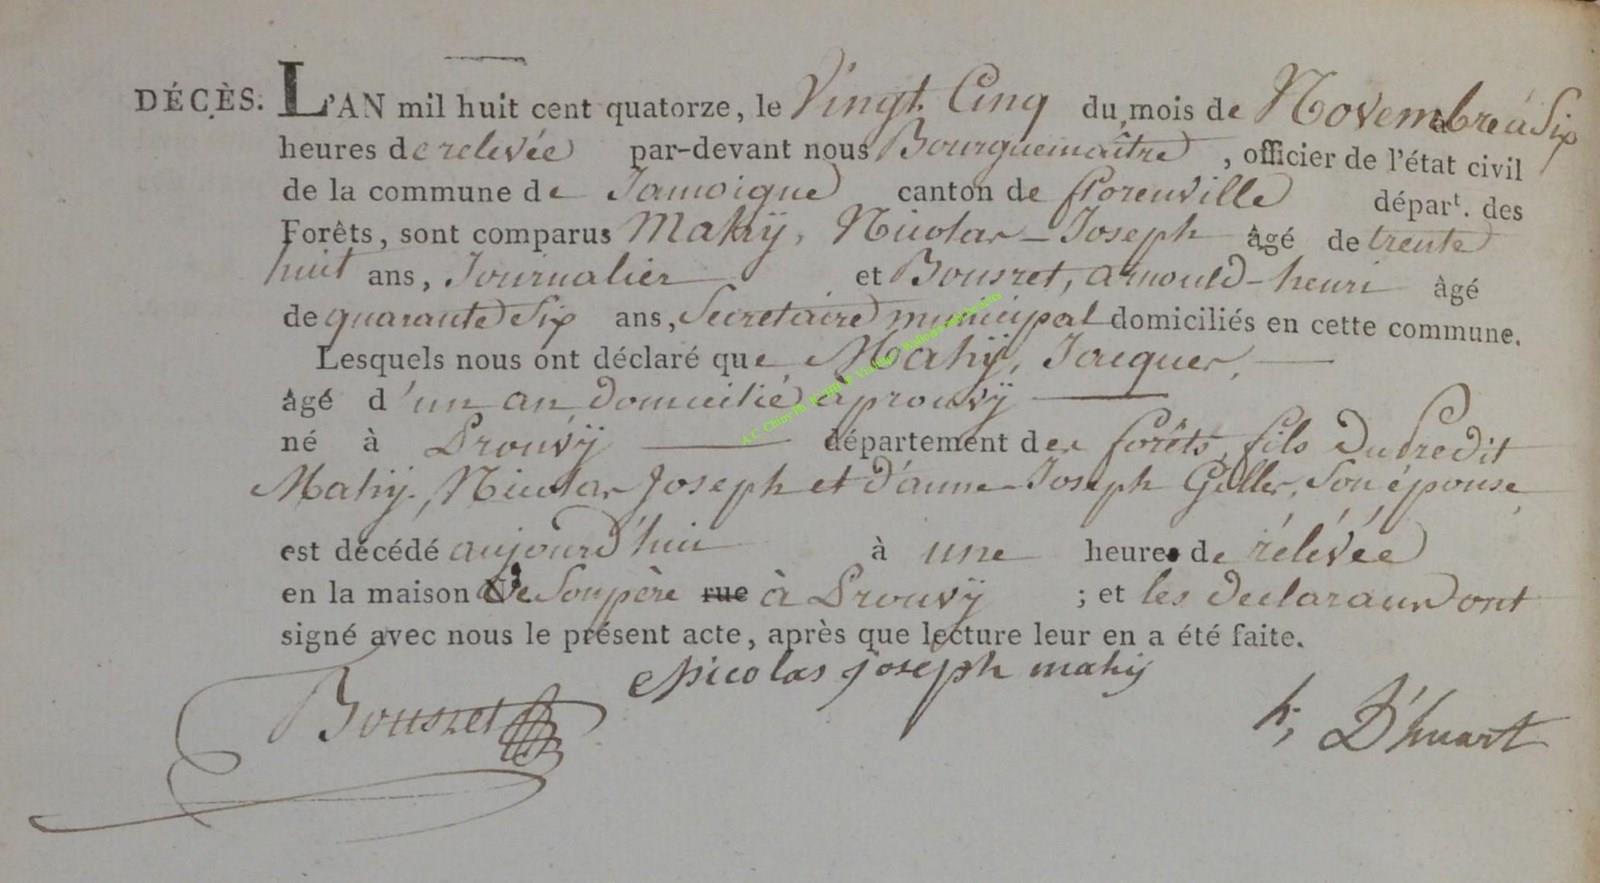 DÉCÈS. L'AN mil huit cent quatorze, le Vingt Cinq du mois de Novembre à Six
heures de relevée par-devant nous Bourguemaître, officier de l'état civil
de la commune de Jamoigne canton de florenville départ. des
Forêts, sont comparus Mahÿ, Nicolas-Joseph âgé de trente
huit ans, Journalier et Bousret, arnould-henri âgé
de quarante Six ans, Secretaire municipal domiciliés en cette commune.
Lesquels nous ont déclaré que Mahÿ, Jacques,
âgé d'un an domicilié à prouvÿ
né à Prouvÿ département des forêts, fils Du Predit
Mahÿ, Nicolas Joseph et d'anne-Joseph Gilles, Son épouse,
est décédé aujourd'hui à une heure de rélévée
en la maison de Son père rue à Prouvÿ ; et les declarans ont
signé avec nous le présent acte, après que lecture leur en a été faite.
Nicolas joseph mahÿ
Bousret h; D'huart